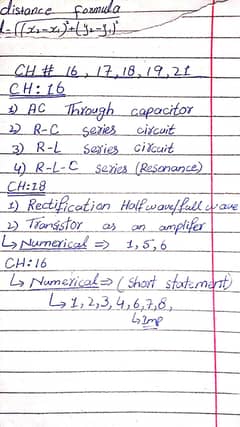 distance formula
d=√(x₂-x₁)²+(y₂-y₁)²
CH # 16, 17, 18, 19, 21
CH: 16
1) AC Through capacitor
2) R-C series circuit
3) R-L series circuit
4) R-L-C series (Resonance)
CH:18
1) Rectification Half wave/full wave
2) Transistor as an amplifer
↳ Numerical => 1,5,6
CH:16
↳ Numerical => (short statement)
↳ 1,2,3,4,6,7,8,
↳ Imp